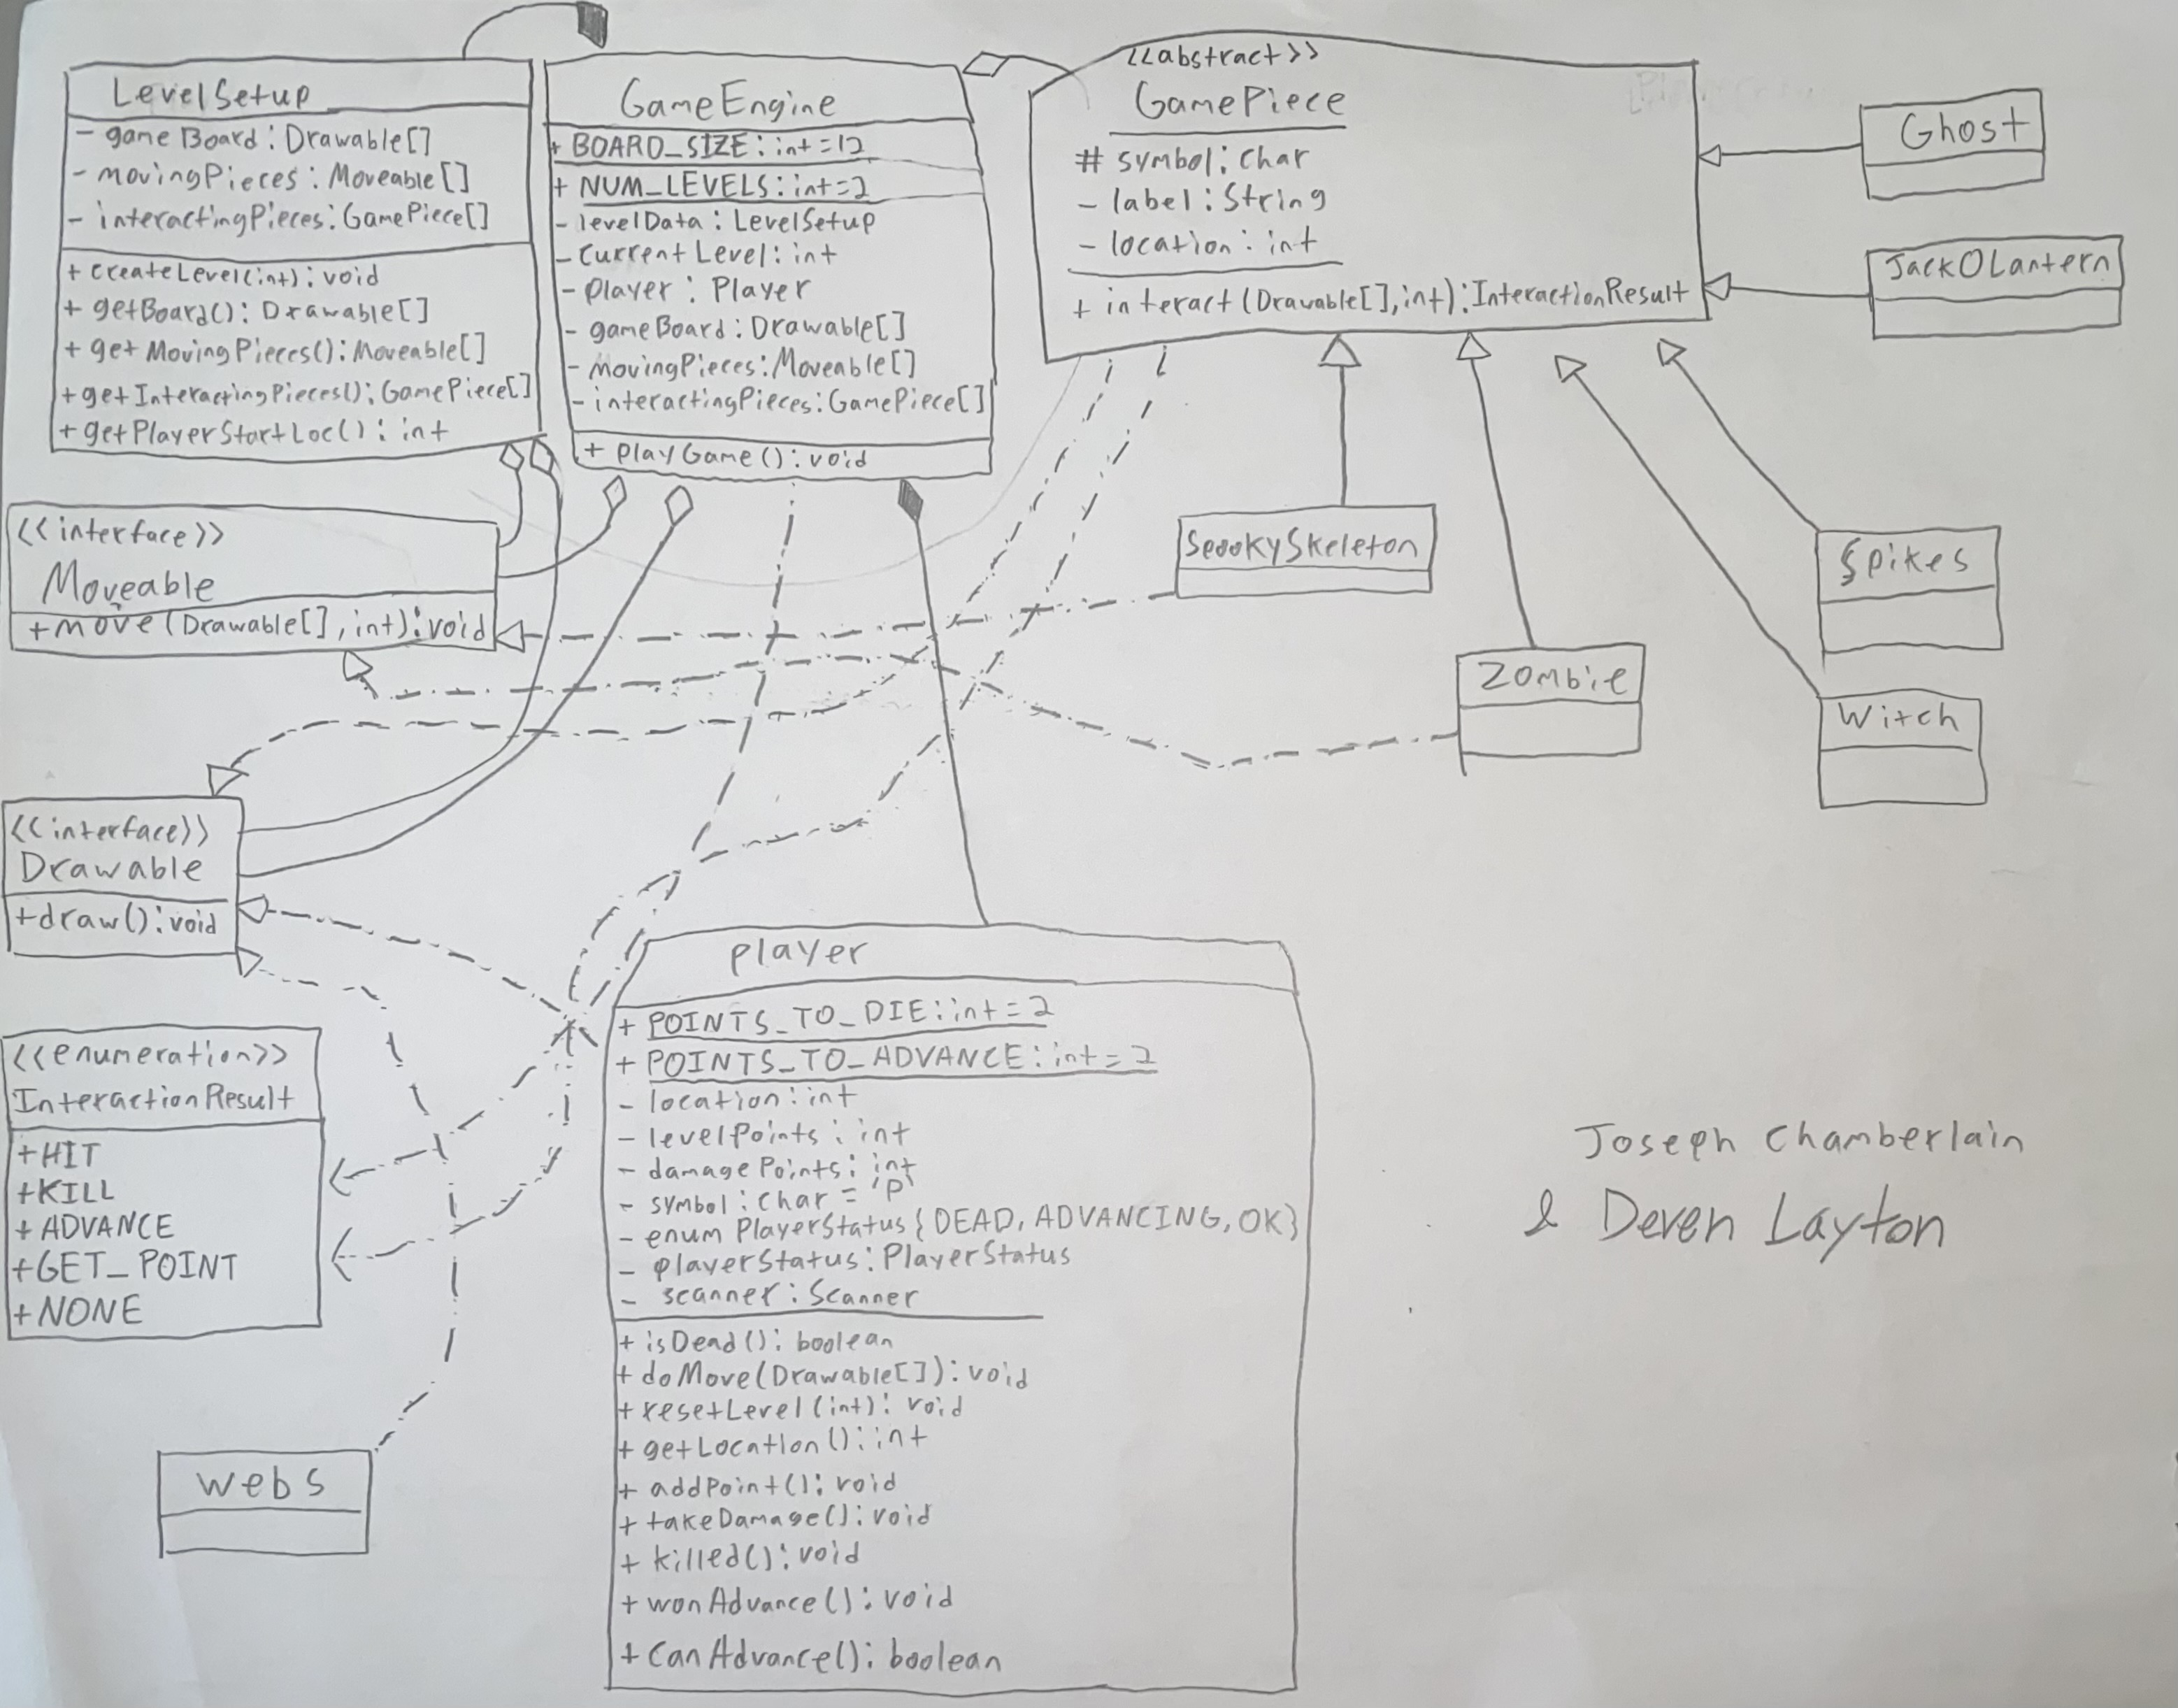 LevelSetup
- gameBoard: Drawable[]
- movingPieces: Moveable[]
- interactingPieces: GamePiece[]
+ createLevel(int): void
+ getBoard(): Drawable[]
+ getMovingPieces(): Moveable[]
+ getInteractingPieces(): GamePiece[]
+ getPlayerStartLoc(): int
GameEngine
+ BOARD_SIZE: int = 12
+ NUM_LEVELS: int = 2
- levelData: LevelSetup
- currentLevel: int
- player: Player
- gameBoard: Drawable[]
- movingPieces: Moveable[]
- interactingPieces: GamePiece[]
+ playGame(): void
<<abstract>>
GamePiece
# symbol: char
- label: String
- location: int
+ interact(Drawable[], int): InteractionResult
Ghost
JackOLantern
<<interface>>
Moveable
+ move(Drawable[], int): void
SpookySkeleton
Spikes
Zombie
Witch
<<interface>>
Drawable
+ draw(): void
<<enumeration>>
InteractionResult
+ HIT
+ KILL
+ ADVANCE
+ GET_POINT
+ NONE
Player
+ POINTS_TO_DIE: int = 2
+ POINTS_TO_ADVANCE: int = 2
- location: int
- levelPoints: int
- damagePoints: int
- symbol: char = 'P'
- enum PlayerStatus{DEAD, ADVANCING, OK}
- playerStatus: PlayerStatus
- scanner: Scanner
+ isDead(): boolean
+ doMove(Drawable[]): void
+ resetLevel(int): void
+ getLocation(): int
+ addPoint(): void
+ takeDamage(): void
+ killed(): void
+ wonAdvance(): void
+ canAdvance(): boolean
Webs
Joseph Chamberlain
& Deven Layton